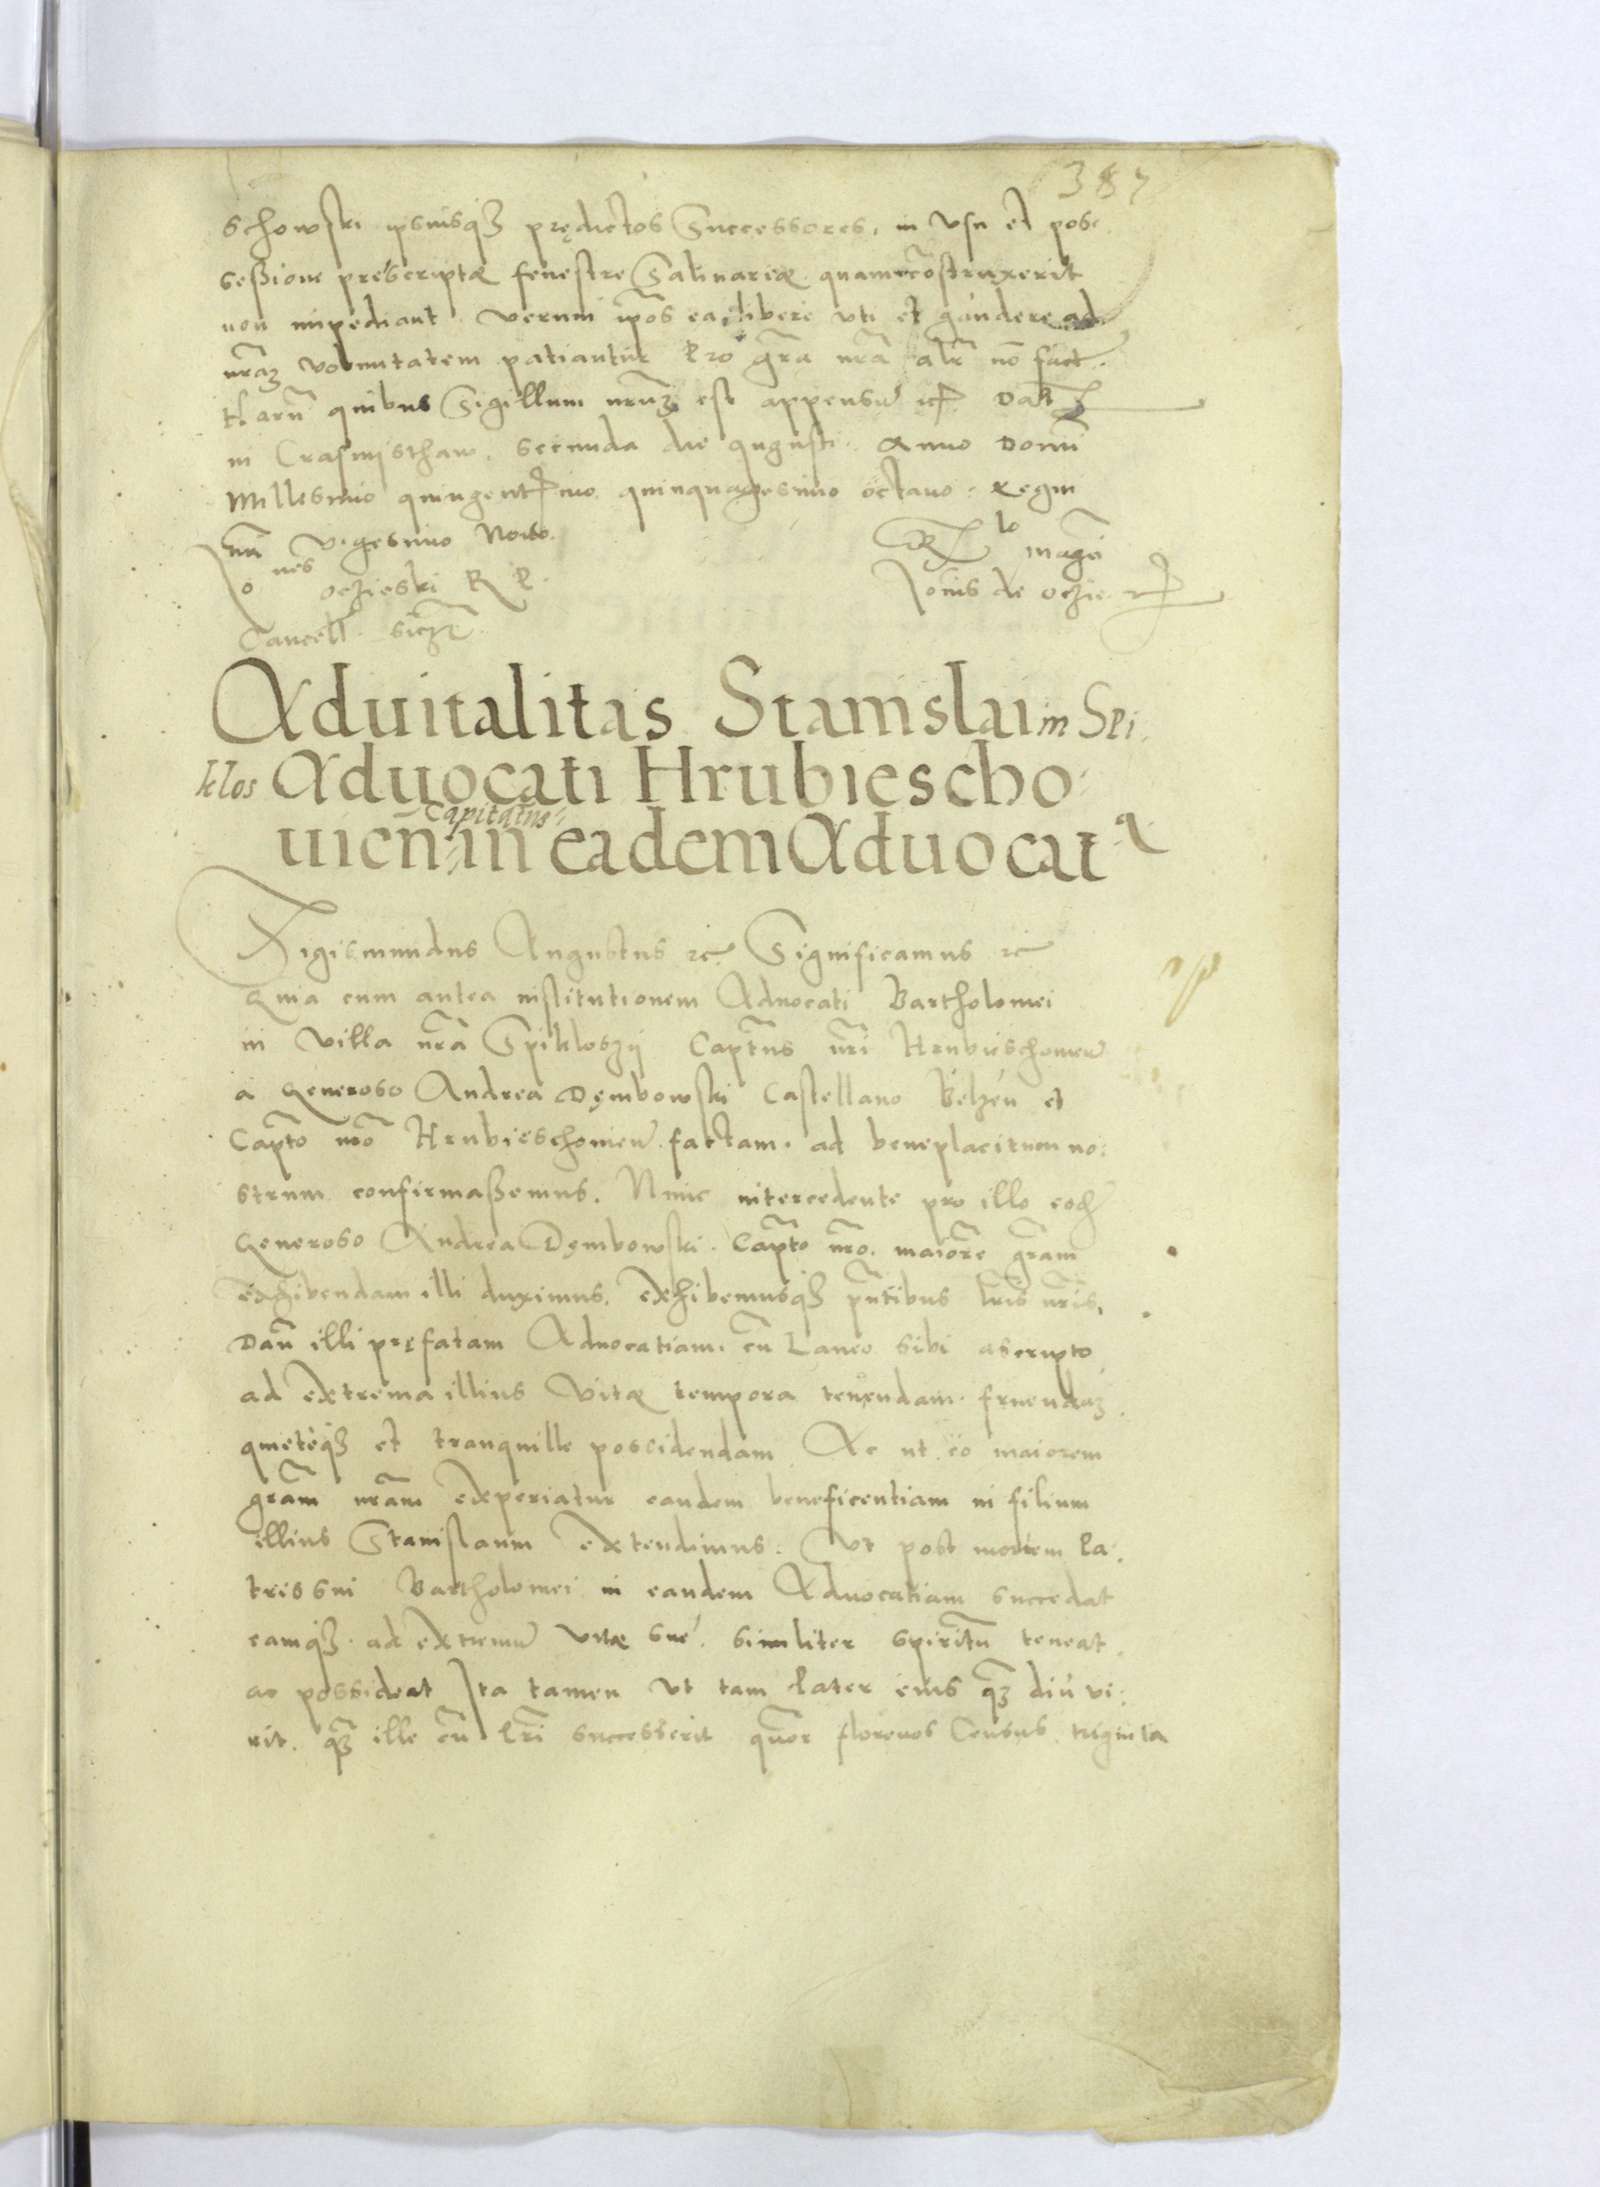 387
schowski ipsiusq3 prędictos Successores, in Vsu et pos:
seßione pręscriptæ fenestre Salinariæ quam cōstruxerit
non impediant. Verum ip̄os ea libere vti et gaudere ad
nr̄a3 Voluntatem patiantur Pro gr̄a nr̄a alr̄ nō fact.
H. arū quibus Sigillum nr̄u3 est appensū etc. Dat
in Crasnisthaw. secunda die Augusti. Anno Domi
Millesimo quingentmo quinquagesimo octauo. Regni
nr̄i Vigesimo Nono.
Jo nes oczieski R P. Rlo magci
Cancell. sszt Joānis de oczie.
Aduitalitas Stanislai in Spi.
klos Aduocati Hrubiescho
Capitatus
uien: in eadem Aduocat a
Sigismundus Augustus etc Significamus etc
Quia cum antea institutionem Aduocati Bartholomei
in Villa nr̄a Spikloszy Captūs nr̄i Hrubieschouien
a Generoso Andrea Dęmbowski Castellano Belzen et
Capto nr̄o Hrubieschouien. factam. ad beneplacitum no:
strum confirmaßemus. Nunc intercedente pro illo eod
Generoso Andrea Dęmbowski. Capto nr̄o. maiorē gr̄am
exhibendam illi duximus. exhibemusq3 pn̄tibus lr̄is nr̄is,
Dan̄ illi pręfatam Aduocatiam. cū Laneo sibi ascripto
ad extrema illius Vitæ tempora tenendam. fruenda3
quieteq3 et tranquille possidendam Ac ut eo maiorem
gr̄am nr̄am experiatur eandem beneficentiam in filium
illius Stanislaum extendimus. Vt post mortem Pa:
tris sui Bartholomei in eandem Aduocatiam succedat
eamq3. ad extremū Vitæ suę. similiter spiritū teneat.
ac possideat Ita tamen Vt tam Pater eius q3 diu vi:
xit. q3 ille cū Pr̄i successerit quor florenos Census triginta